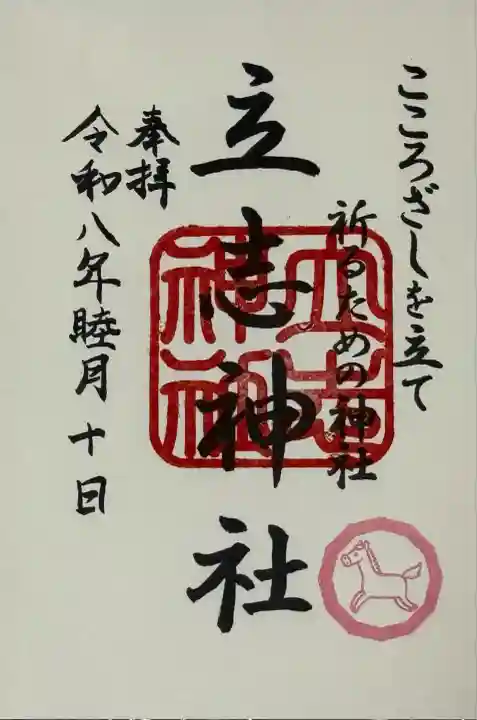 こころざしを立て
祈るための神社
立志神社
奉拝
令和八年睦月十日
立志
神社